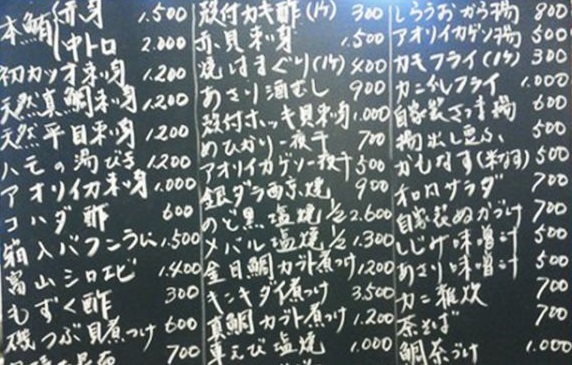 本鮪 赤身 1.500
中トロ 2.000
初カツオ刺身 1.200
天然真鯛刺身 1.200
天然平目刺身 1.200
ハモの湯びき 1.200
アオリイカ刺身 1.000
コハダ酢 600
箱入バフンうに 1.500
富山シロエビ 1.400
もずく酢 300
磯つぶ貝煮つけ 600
700
殻付カキ酢(1ケ) 300
赤貝刺身 1.500
焼はまぐり(1ケ) 400
あさり酒むし 900
殻付ホッキ貝刺身 1.000
めひかり一夜干 700
アオリイカゲソ一夜干 500
銀ダラ西京焼 900
のど黒塩焼 1/2 2.600
メバル塩焼 1/2 1.300
金目鯛カブト煮つけ 1.200
キンキダイ煮つけ 3.500
真鯛カブト煮つけ 1.200
車えび塩焼 1.000
しろうおから揚 800
アオリイカゲソ揚 500
カキフライ(1ケ) 300
カニ爪フライ 1.000
自家製さつま揚 600
揚出し豆ふ 500
かもなす(半切) 500
和風サラダ 700
自家製ぬかづけ 700
しじみ味噌汁 500
あさり味噌汁 500
カニ雑炊 700
茶そば 700
鯛茶づけ 1.000